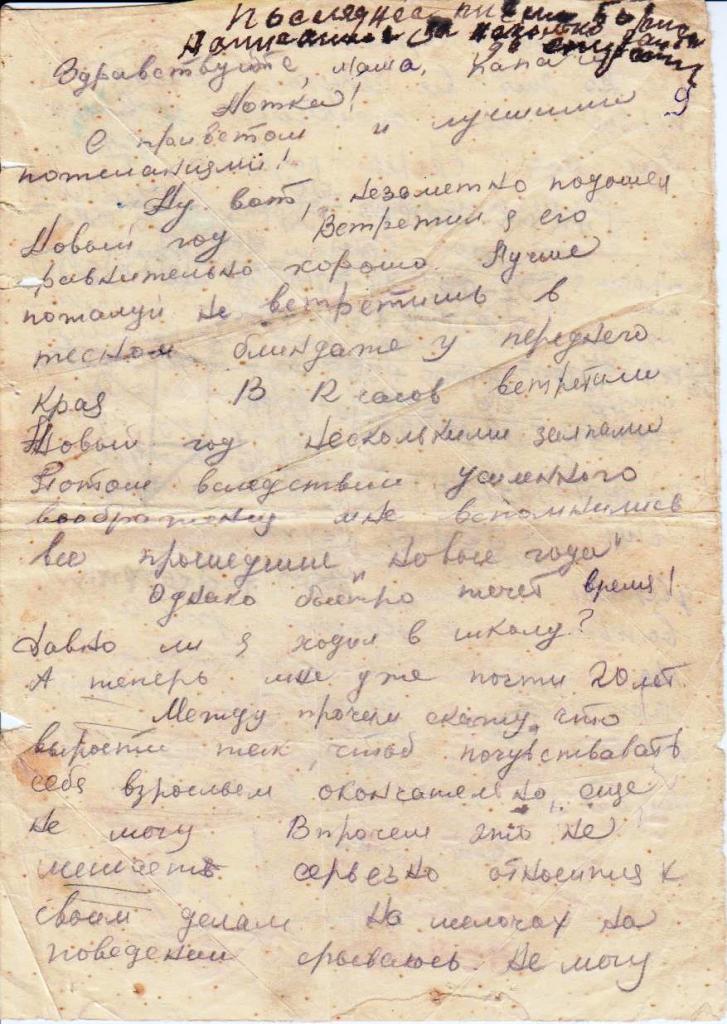 Последнее письмо Бориса
Написанное за несколько дней до смерти
Здравствуйте, мама, папа и
Нотка!
С приветом и лучшими
пожеланиями!
Ну вот, незаметно подошел
Новый год Встретил я его
сравнительно хорошо Лучше
пожалуй не встретишь в
тесном блиндаже у переднего
края В 12 часов встретили
Новый год несколькими залпами
Потом вследствии усиленного
воображения мне вспомнились
все прошедшие "Новые года"
Однако быстро течет время!
Давно ли я ходил в школу?
А теперь мне уже почти 20 лет.
Между прочем скажу, что
вырости так, чтоб почувствавать
себя взрослым окончательно, еще
не могу Впрочем это не
мешает серьезно относится к
своим делам На мелочах на
поведении срываюсь. Не могу